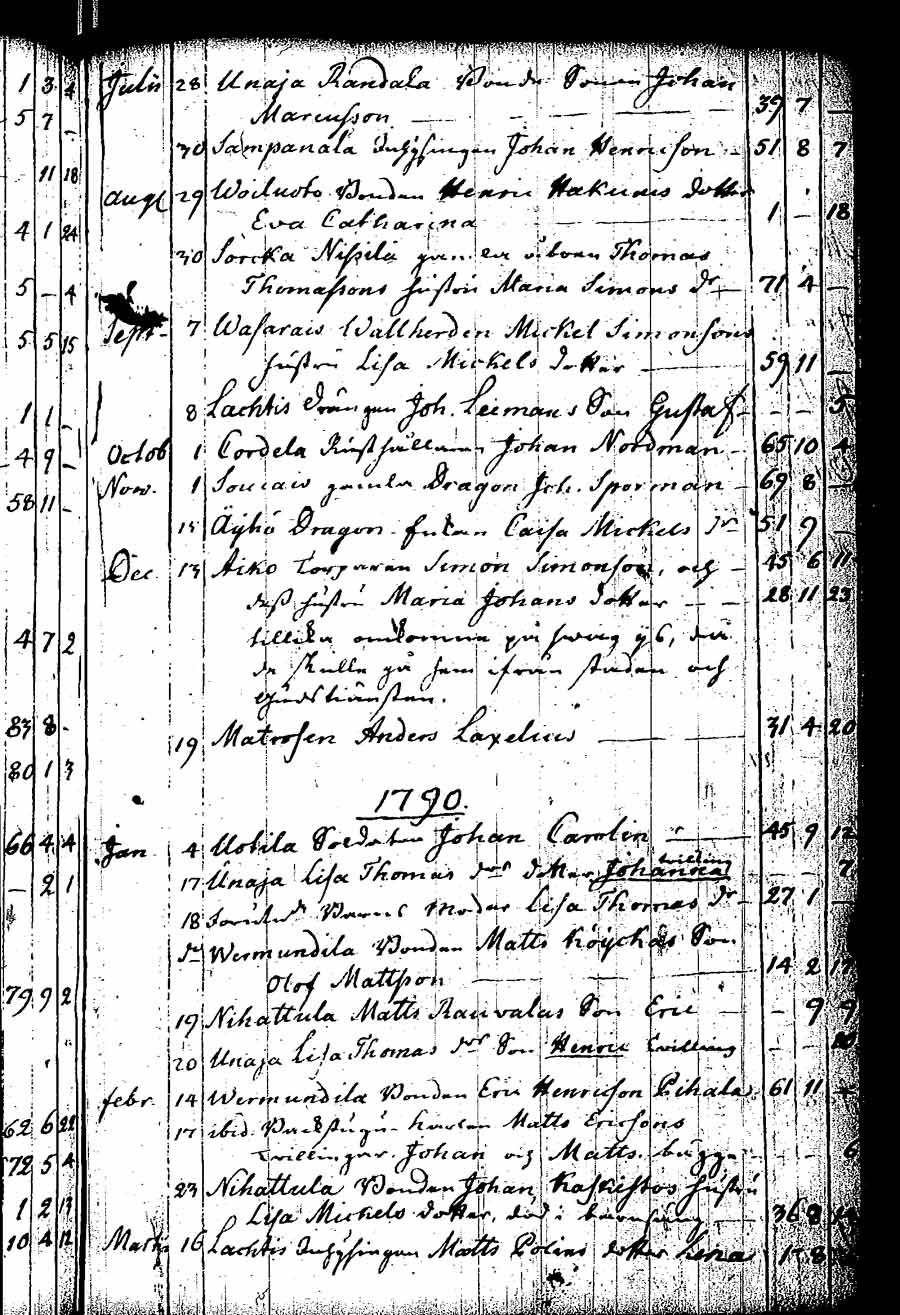 1 3 4 Julii 28 Unaja Randala Bonde Sonen Johan
5 7 - Marcusson 39 7 -
30 Sampanala Inhysingen Johan Henricson 51 8 7
11 18
Aug 29 Woiluoto Bondens Henric Hakunis dotter
4 1 24 Eva Catharina 1 - 18
30 Sorcka Nissilä gamla Thomas
5 - 4 Thomassons hustru Maria Simons dr 71 4 -
5 5 15 Sept. 7 Wasarais Wallherden Mickel Simonsons
hustru Lisa Mickels dotter 59 11 -
1 1 - 8 Lachtis Drängen Joh. Leemans Son Gustaf - - 5
4 9 - Octob 1 Cordela Rusthållaren Johan Nordman 65 10 4
58 11 - Nov. 1 gamla Dragon Joh. Sporman 69 8 -
15 Äyhö Dragon Enkan Caisa Mickels dr 51 9 -
Dec. 13 Aiko Torparen Simon Simonson, och 45 6 11
dess hustru Maria Johans dotter 28 11 23
4 7 2 tillika omkomne på swag ys, då
de skulle gå hem ifrån staden och
Gudstiänsten.
83 8 -
19 Matrosen Anders Laxelius 31 4 20
80 1 3
1790.
66 4 4 Jan 4 Uotila Soldaten Johan Carolin 45 9 12
tvilling
- 2 1 17 Unaja Lisa Thomas drs dotter Johanna - - 7
18 Barnets Moder Lisa Thomas dr 27 1 -
do Wermundila Bonden Matts Köyckäs Son
79 9 2 Olof Mattsson 14 2 17
19 Nihattula Matts Rauvalas Son Eric - 9 9
20 Unaja Lisa Thomas drs Son Henric tvilling - -
febr. 14 Wermundila Bonden Eric Henricson Pihala 61 11 -
62 6 22 17 ibid. Matts Ericsons
72 5 4 tvillingar Johan och Matts. bägge - - 6
23 Nihattula Bonden Johan Kaskistos hustru
1 2 13 Lisa Mickels dotter, död i barnsäng 36 8 14
10 4 12 Martii 16 Lachtis Inhysingen Matts Polins dotter Lena 1 8